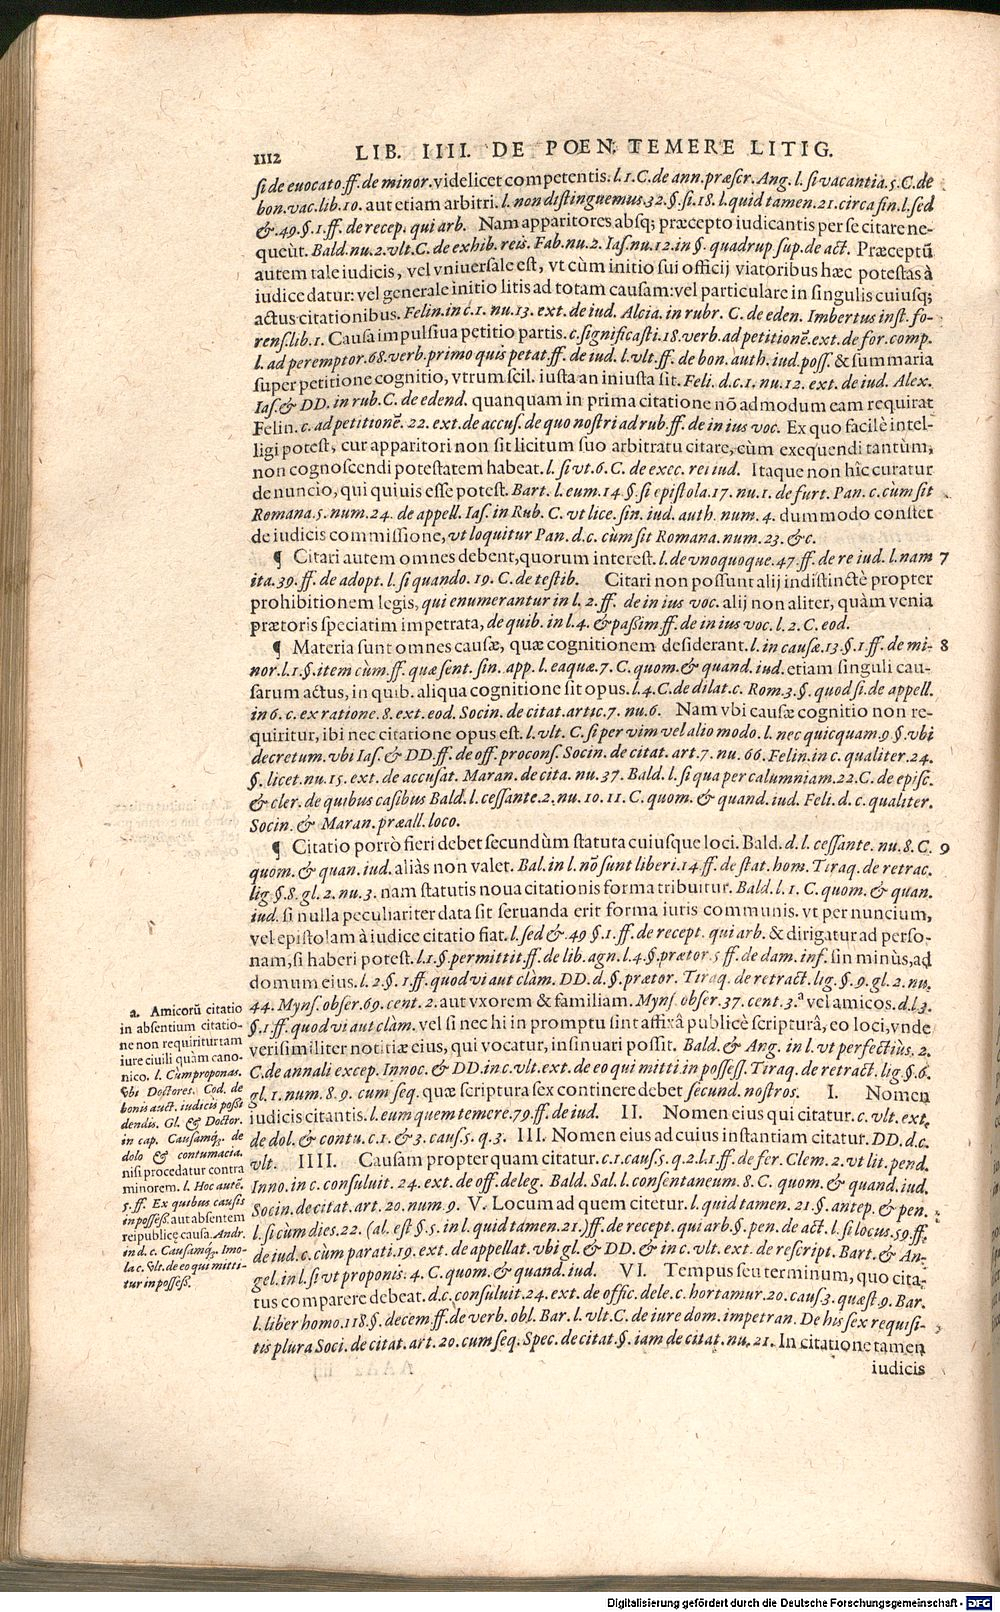 1112 LIB. IIII. DE POEN. TEMERE LITIG.
si de euocato. ff. de minor. videlicet competentis. l. 1. C. de ann. præscr. Ang. l. si vacantia. 5. C. de
bon. vac. lib. 10. aut etiam arbitri. l. non distinguemus 32. §. si. 18. l. quid tamen. 21. circa fin. l. sed
& .49. §. 1. ff. de recep. qui arb. Nam apparitores absq; præcepto iudicantis per se citare ne-
queūt. Bald. nu. 2. vlt. C. de exhib. reis. Fab. nu. 2. Ias. nu. 12. in §. quadrup. sup. de act. Præceptū
autem tale iudicis, vel vniuersale est, vt cùm initio sui officij viatoribus hæc potestas à
iudice datur: vel generale initio litis ad totam causam: vel particulare in singulis cuiusq;
actus citationibus. Felin. in c. 1. nu. 13. ext. de iud. Alcia. in rubr. C. de eden. Imbertus inst. fo-
rens. lib. 1. Causa impulsiua petitio partis. c. significasti. 18. verb. ad petitionē. ext. de for. comp.
l. ad peremptor. 68. verb. primo quis petat. ff. de iud. l. vlt. ff. de bon. auth. iud. poss. & summaria
super petitione cognitio, vtrum scil. iusta an iniusta sit. Feli. d. c. 1. nu. 12. ext. de iud. Alex.
Ias. & DD. in rub. C. de edend. quanquam in prima citatione nō admodum eam requirat
Felin. c. ad petitionē. 22. ext. de accus. de quo nostri ad rub. ff. de in ius voc. Ex quo facilè intel-
ligi potest, cur apparitori non sit licitum suo arbitratu citare, cùm exequendi tantùm,
non cognoscendi potestatem habeat. l. si vt. 6. C. de exec. rei iud. Itaque non hîc curatur
de nuncio, qui quiuis esse potest. Bart. l. eum. 14. §. si epistola. 17. nu. 1. de furt. Pan. c. cùm sit
Romana. 5. num. 24. de appell. Ias. in Rub. C. vt lice. sin. iud. auth. num. 4. dummodo constet
de iudicis commissione, vt loquitur Pan. d. c. cùm sit Romana. num. 23. &c.
¶ Citari autem omnes debent, quorum interest. l. de vnoquoque. 47. ff. de re iud. l. nam 7
ita. 39. ff. de adopt. l. si quando. 19. C. de testib. Citari non possunt alij indistinctè propter
prohibitionem legis, qui enumerantur in l. 2. ff. de in ius voc. alij non aliter, quàm venia
prætoris speciatim impetrata, de quib. in l. 4. & passim ff. de in ius voc. l. 2. C. eod.
¶ Materia sunt omnes causæ, quæ cognitionem desiderant. l. in causæ. 13. §. 1. ff. de mi- 8
nor. l. 1. §. item cùm. ff. quæ sent. sin. app. l. ea quæ. 7. C. quom. & quand. iud. etiam singuli cau-
sarum actus, in quib. aliqua cognitione sit opus. l. 4. C. de dilat. c. Rom. 3. §. quod si. de appell.
in 6. c. ex ratione. 8. ext. eod. Socin. de citat. artic. 7. nu. 6. Nam vbi causæ cognitio non re-
quiritur, ibi nec citatione opus est. l. vlt. C. si per vim vel alio modo. l. nec quicquam. 9. §. vbi
decretum. vbi Ias. & DD. ff. de off. procons. Socin. de citat. art. 7. nu. 66. Felin. in c. qualiter. 24.
§. licet. nu. 15. ext. de accusat. Maran. de cita. nu. 37. Bald. l. si qua per calumniam. 22. C. de episc.
& cler. de quibus casibus Bald. l. cessante. 2. nu. 10. 11. C. quom. & quand. iud. Feli. d. c. qualiter.
Socin. & Maran. præall. loco.
¶ Citatio porrò fieri debet secundùm statuta cuiusque loci. Bald. d. l. cessante. nu. 8. C. 9
quom. & quan. iud. aliàs non valet. Bal. in l. nō sunt liberi. 14. ff. de stat. hom. Tiraq. de retrac.
lig. §. 8. gl. 2. nu. 3. nam statutis noua citationis forma tribuitur. Bald. l. 1. C. quom. & quan.
iud. si nulla peculiariter data sit seruanda erit forma iuris communis. vt per nuncium,
vel epistolam à iudice citatio fiat. l. sed & .49 §. 1. ff. de recept. qui arb. & dirigatur ad perso-
nam, si haberi potest. l. 1. §. permittit. ff. de lib. agn. l. 4. §. prætor. 5 ff. de dam. inf. sin minùs, ad
domum eius. l. 2. §. 1. ff. quod vi aut clàm. DD. d. §. prætor. Tiraq. de retract. lig. §. 9. gl. 2. nu.
44. Myns. obser. 69. cent. 2. aut vxorem & familiam. Myns. obser. 37. cent. 3. ª vel amicos. d. l. 3.
§. 1. ff. quod vi aut clàm. vel si nec hi in promptu sint affixâ publicè scripturâ, eo loci, vnde
verisimiliter notitiæ eius, qui vocatur, insinuari possit. Bald. & Ang. in l. vt perfectiùs. 2.
C. de annali excep. Innoc. & DD. in c. vlt. ext. de eo qui mitti in possess. Tiraq. de retract. lig §. 6.
gl. 1. num. 8. 9. cum seq. quæ scriptura sex continere debet secund. nostros. I. Nomen
iudicis citantis. l. eum quem temere. 79. ff. de iud. II. Nomen eius qui citatur. c. vlt. ext.
de dol. & contu. c. 1. & 3. caus. 5. q. 3. III. Nomen eius ad cuius instantiam citatur. DD. d. c.
vlt. IIII. Causam propter quam citatur. c. 1. caus. 5. q. 2. l. 1. ff. de fer. Clem. 2. vt lit. pend.
Inno. in c. consuluit. 24. ext. de off. deleg. Bald. Sal. l. consentaneum. 8. C. quom. & quand. iud.
Socin. de citat. art. 20. num. 9. V. Locum ad quem citetur. l. quid tamen. 21. §. antep. & pen.
l. si cùm dies. 22. (al. est §. 5. in l. quid tamen. 21.) ff. de recept. qui arb. §. pen. de act. l. si locus. 59. ff.
de iud. c. cùm parati. 19. ext. de appellat. vbi gl. & DD. & in c. vlt. ext. de rescript. Bart. & An-
gel. in l. si vt proponis. 4. C. quom. & quand. iud. VI. Tempus seu terminum, quo cita-
tus comparere debeat. d. c. consuluit. 24. ext. de offic. dele. c. hortamur. 20. caus. 3. quæst. 9. Bar.
l. liber homo. 118. §. decem. ff. de verb. obl. Bar. l. vlt. C. de iure dom. impetran. De his sex requisi-
tis plura Soci. de citat. art. 20. cum seq. Spec. de citat. §. iam de citat. nu. 21. In citatione tamen
iudicis
a. Amicorū citatio
in absentium citatio-
ne non requiritur tam
iure ciuili quàm cano-
nico. l. Cùm proponas.
vbi Doctores. Cod. de
bonis auct. iudicis possi
dendis. Gl. & Doctor.
in cap. Causamq;. de
dolo & contumacia.
nisi procedatur contra
minorem. l. Hoc autē.
5. ff. Ex quibus causis
in posseß. aut absentem
reipublicę causa. Andr.
in d. c. Causamq;. Imo-
la c. vlt. de eo qui mitti-
tur in posseß.
Digitalisierung gefördert durch die Deutsche Forschungsgemeinschaft - DFG